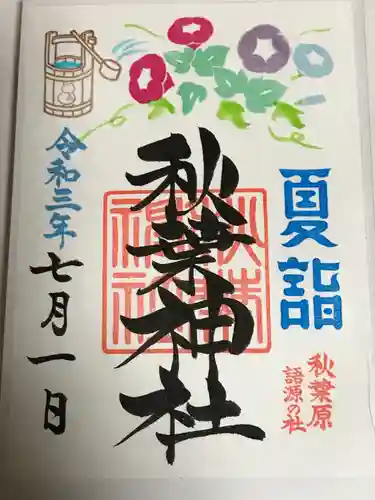 夏詣
秋葉原
語源の社
秋葉神社
秋葉神社
令和三年
七月一日